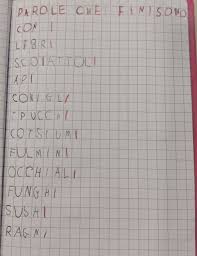 PAROLE CHE FINISONO
CON I
LIBRI
SCOIATTOLI
API
CONIGLI
TRUCCHI
COTSIUMI
FULMINI
OCCHIALI
FUNGHI
SUSHI
RAGNI